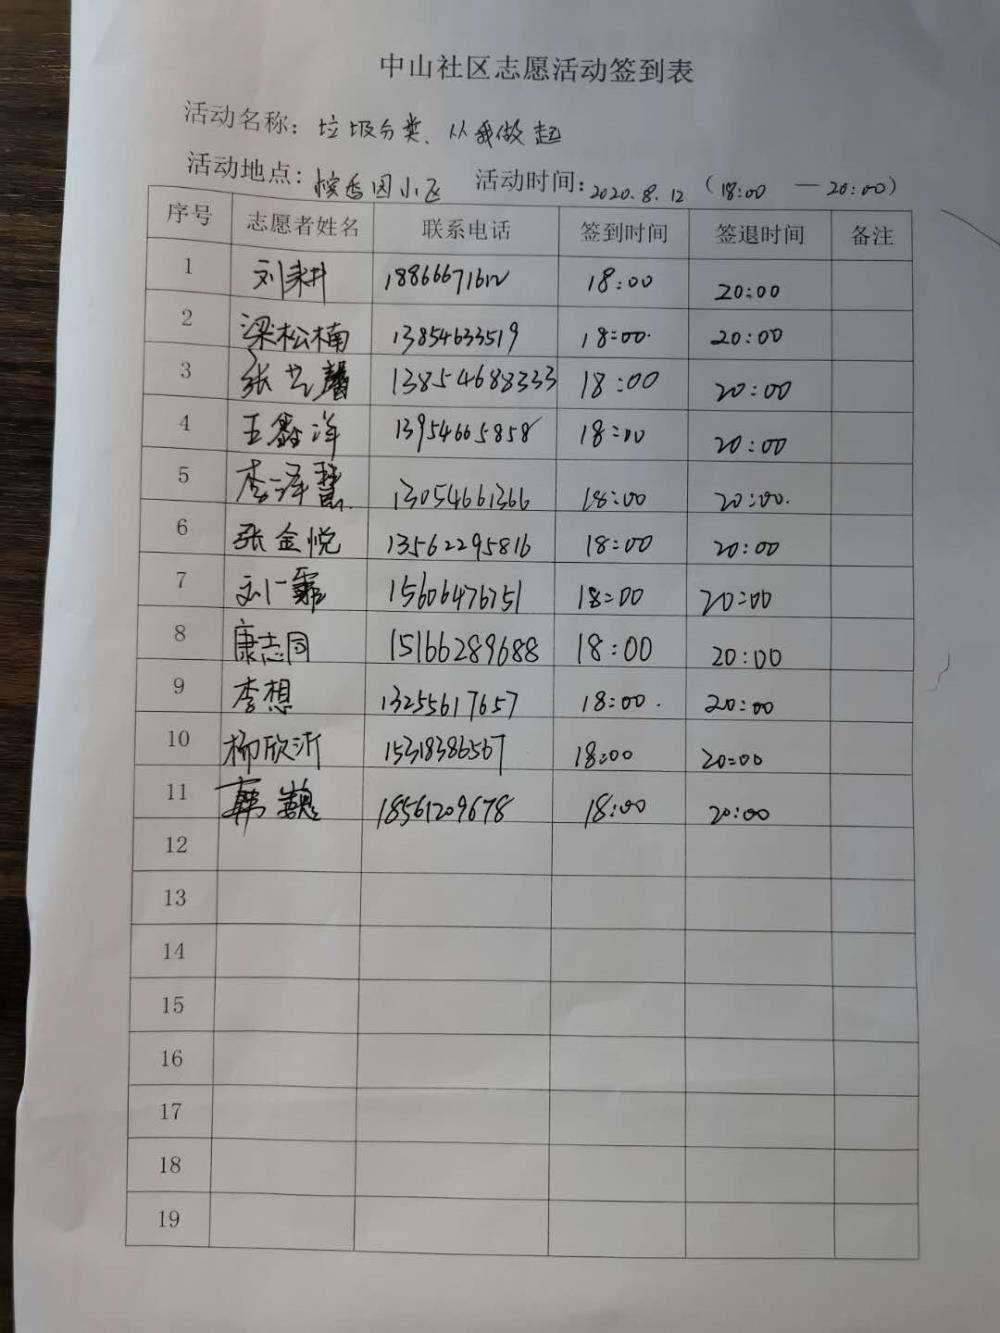 中山社区志愿活动签到表
活动名称: 垃圾分类、从我做起
活动地点: 槟香园小区 活动时间: 2020.8.12 (18:00 — 20:00)
序号 志愿者姓名 联系电话 签到时间 签退时间 备注
1 刘耕 18866671612 18:00 20:00
2 梁松楠 13854633519 18:00 20:00
3 张艺馨 13854688333 18:00 20:00
4 王鑫洋 13954665858 18:00 20:00
5 李泽慧 13054661366 18:00 20:00
6 张金悦 13562295816 18:00 20:00
7 刘一霏 15606476751 18:00 20:00
8 康志同 15166289688 18:00 20:00
9 李想 13255617657 18:00 20:00
10 柳欣沂 15318386567 18:00 20:00
11 韩 18561209678 18:00 20:00
12
13
14
15
16
17
18
19